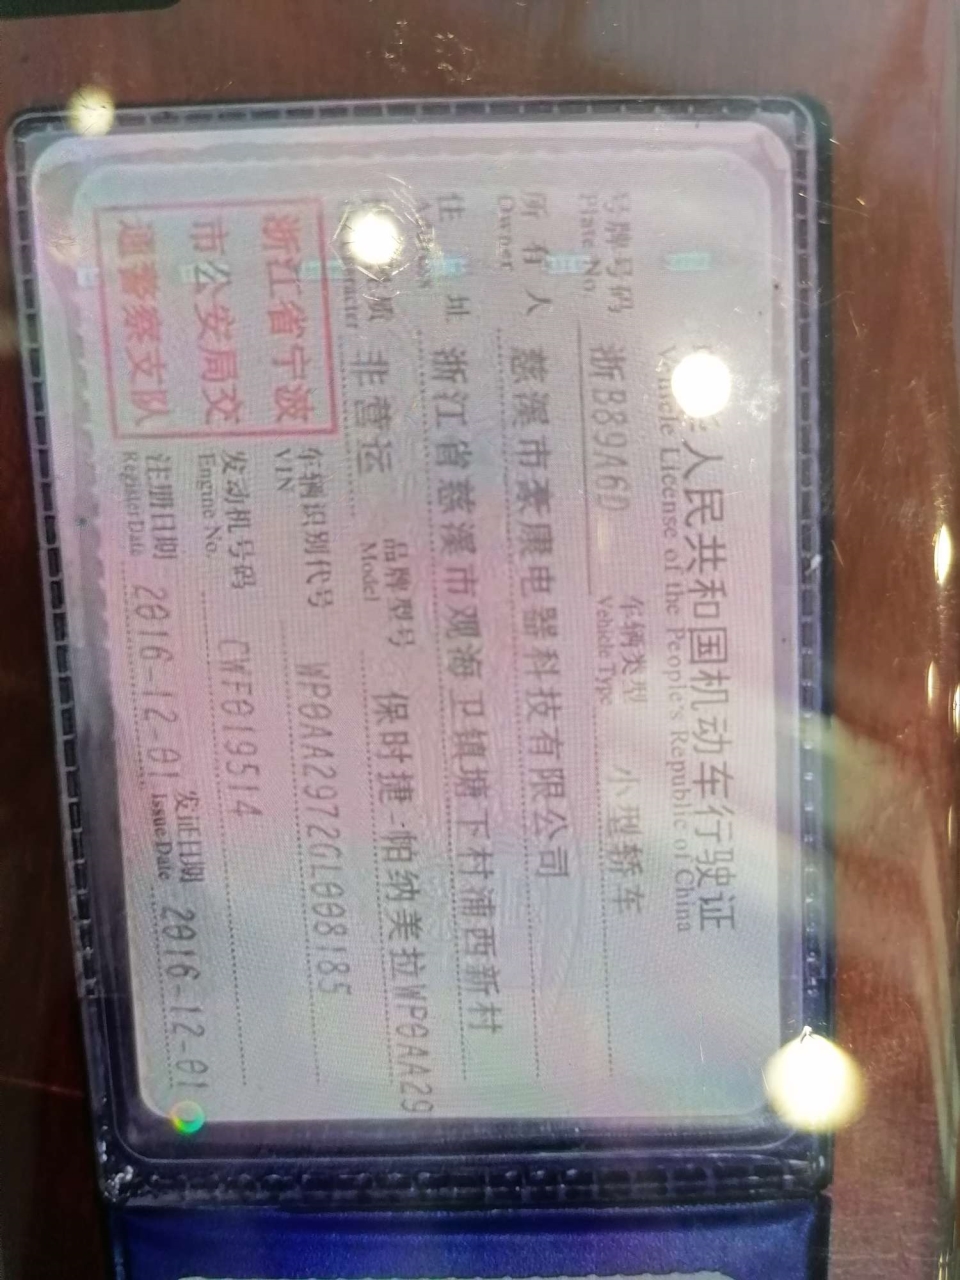 人民共和国机动车行驶证
Vehicle License of the People's Republic of China
号牌号码 浙B89A6D 车辆类型 小型轿车
Plate No. Vehicle Type
所有人 慈溪市豪康电器科技有限公司
Owner
住址 浙江省慈溪市观海卫镇塘下村浦西新村
非营运 品牌型号 保时捷-帕纳美拉WP0AA29
Model
浙江省宁波
市公安局交
通警察支队
车辆识别代号 WP0AA2972GL008185
VIN
发动机号码 CWF019514
Engine No.
注册日期 2016-12-01 发证日期 2016-12-01
Register Date Issue Date